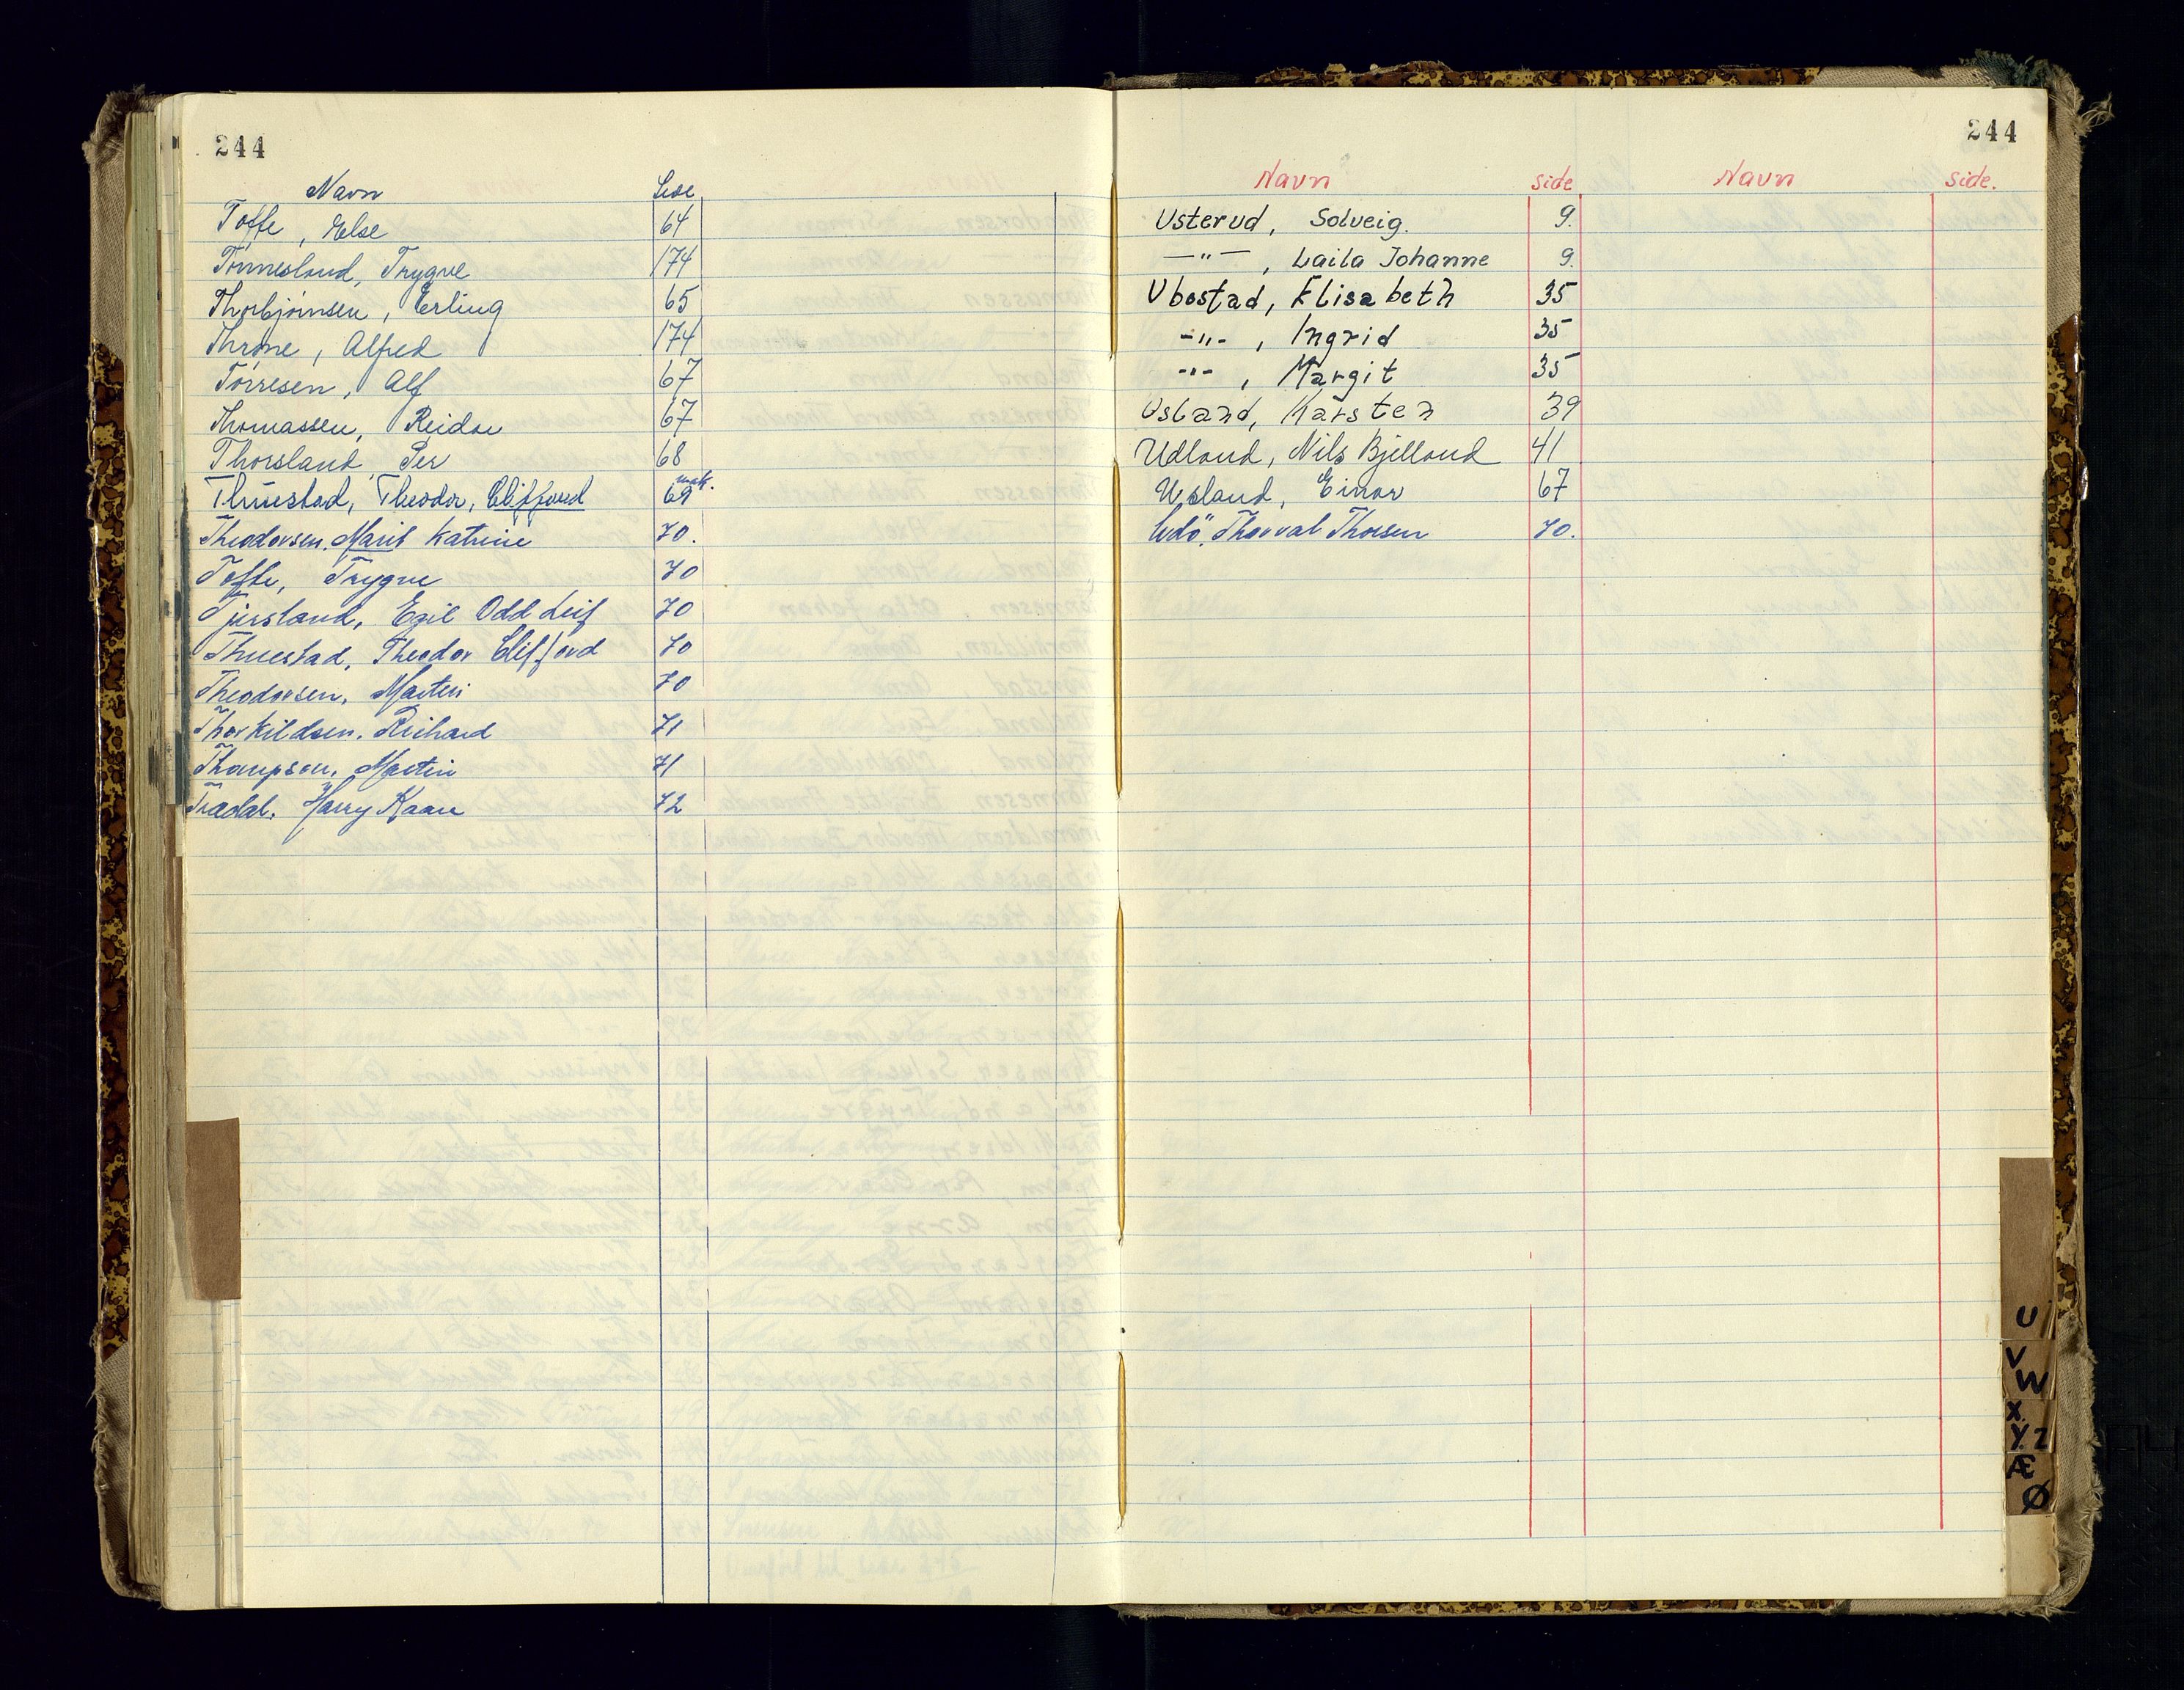 244
Navn Side
Toffe, Else 64
Tönnesland, Trygve 174
Thorbjörnsen, Erling 65
Throne, Alfred 174
Törresen, Alf 67
Thomassen, Reidar 67
Thorsland, Per 68
Thuestad, Theodor, Clifford 69
Theodorsen, Marit Katrine 70.
Toffe, Trygve 70
Tjersland, Egil Odd Leif 70
Thuestad, Theodor Clifford 70
Theodorsen, Martin 70
Thorkildsen, Richard 71
Thompson, Martin 71
Trædal, Harry Kaare 72
244
Navn side Navn side.
Usterud, Solveig. 9.
—"—, Laila Johanne 9.
Ubostad, Elisabeth 35
-"-, Ingrid 35
-"-, Margit 35
Usland, Karsten 39
Udland, Nils Bjelland 41
Usland, Einar 67
Udö, Thorval Thorsen 70.
U
V
W
X
Y Z
Æ
Ø